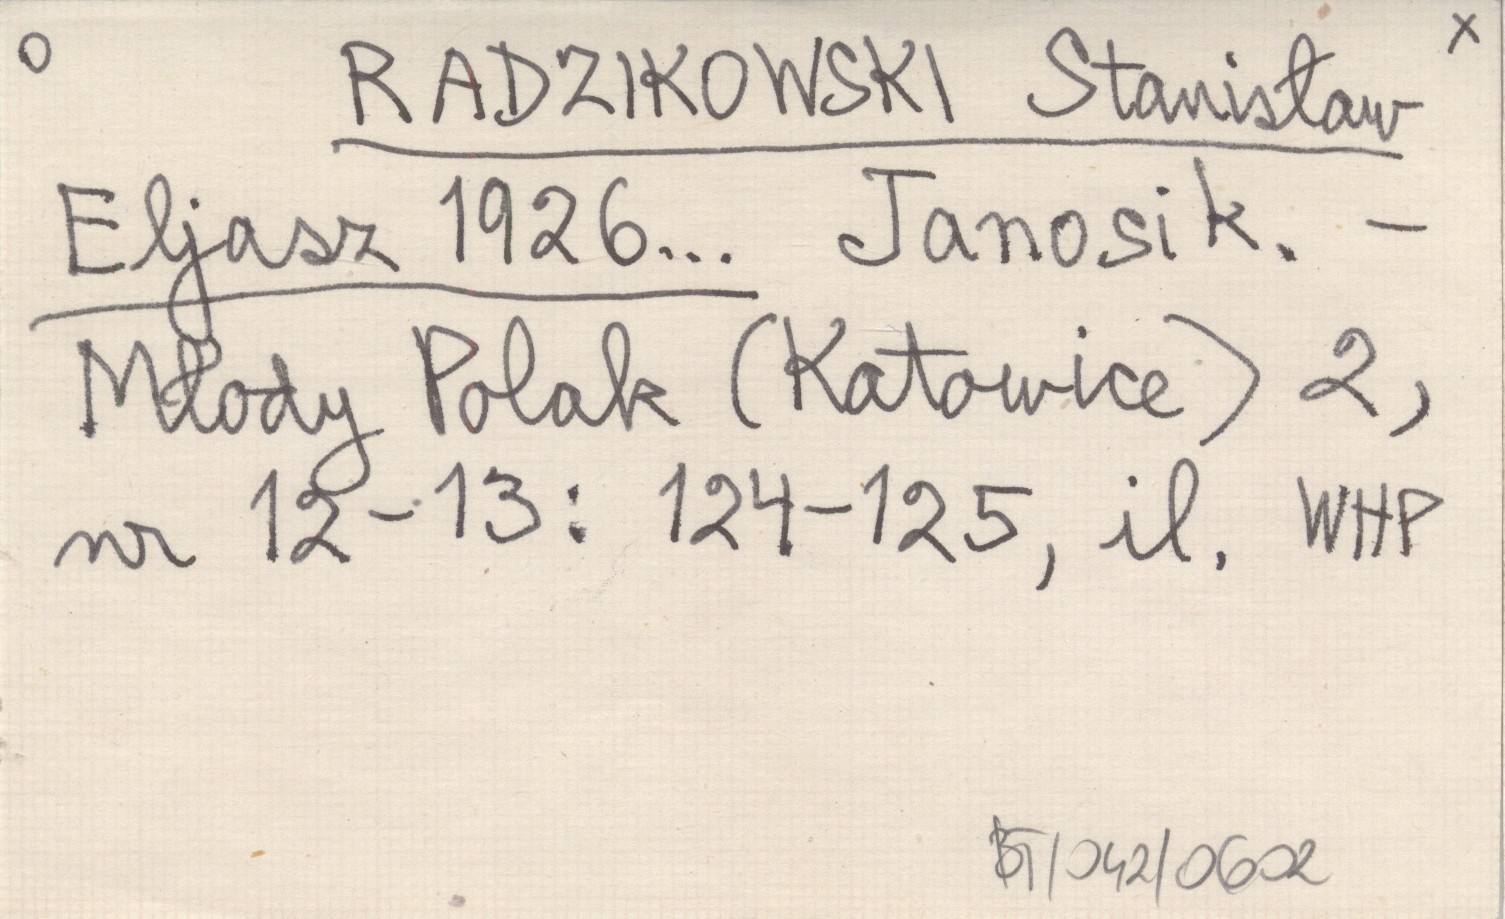 O RADZIKOWSKI Stanisław x
Eljasz 1926... Janosik. –
Młody Polak (Katowice) 2,
nr 12–13: 124–125, il. WHP
BT/042/0602